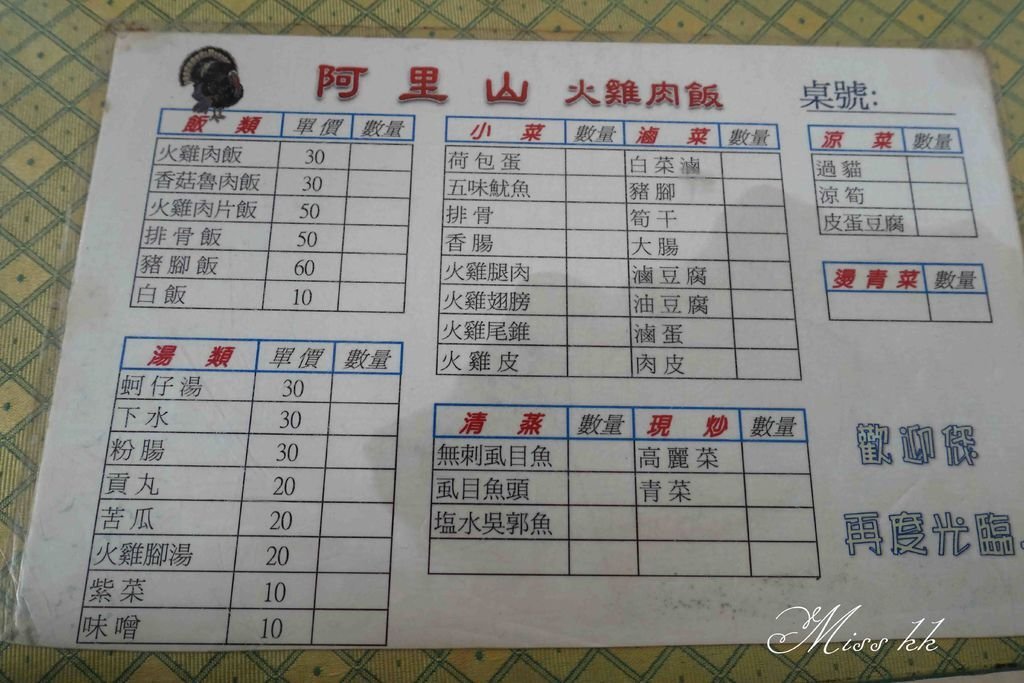 阿里山 火雞肉飯 桌號:
飯類 單價 數量
火雞肉飯 30
香菇魯肉飯 30
火雞肉片飯 50
排骨飯 50
豬腳飯 60
白飯 10
湯類 單價 數量
蚵仔湯 30
下水 30
粉腸 30
貢丸 20
苦瓜 20
火雞腳湯 20
紫菜 10
味噌 10
小菜 數量 滷菜 數量
荷包蛋 白菜滷
五味魷魚 豬腳
排骨 筍干
香腸 大腸
火雞腿肉 滷豆腐
火雞翅膀 油豆腐
火雞尾錐 滷蛋
火雞皮 肉皮
清蒸 數量 現炒 數量
無刺虱目魚 高麗菜
虱目魚頭 青菜
塩水吳郭魚
涼菜 數量
過貓
涼筍
皮蛋豆腐
燙青菜 數量
歡迎您
再度光臨.
Miss kk